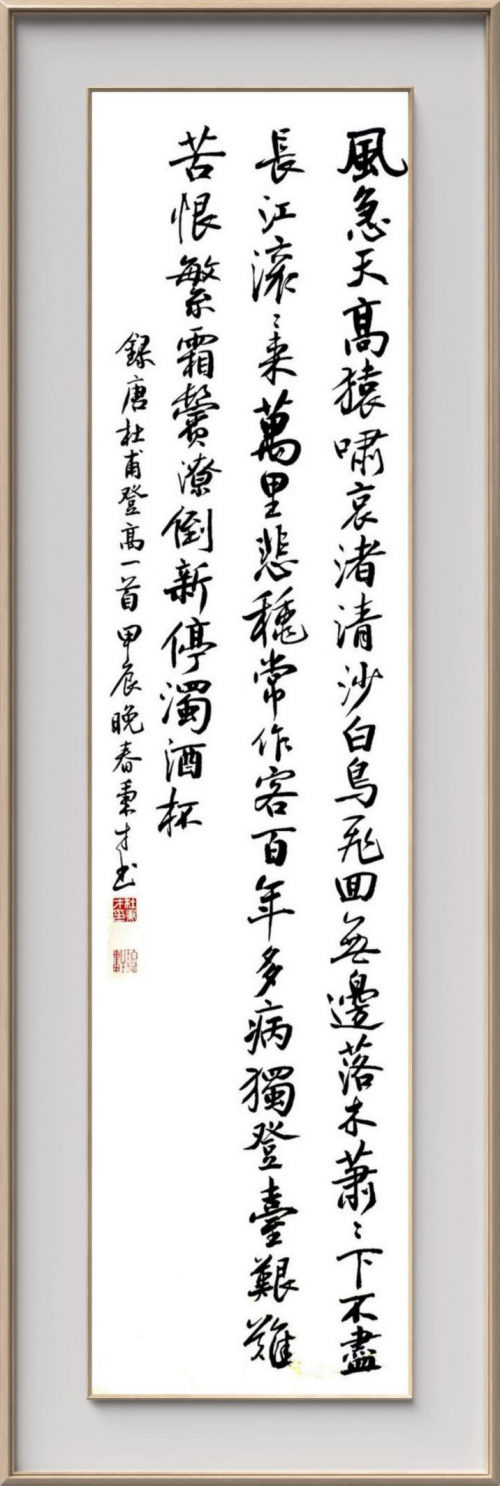 風急天高猿嘯哀渚清沙白鳥飛回無邊落木蕭〻下不盡
長江滚〻来萬里悲穐常作客百年多病獨登臺艱難
苦恨繁霜鬢潦倒新停濁酒杯
録唐杜甫登高一首甲辰晚春秉才书